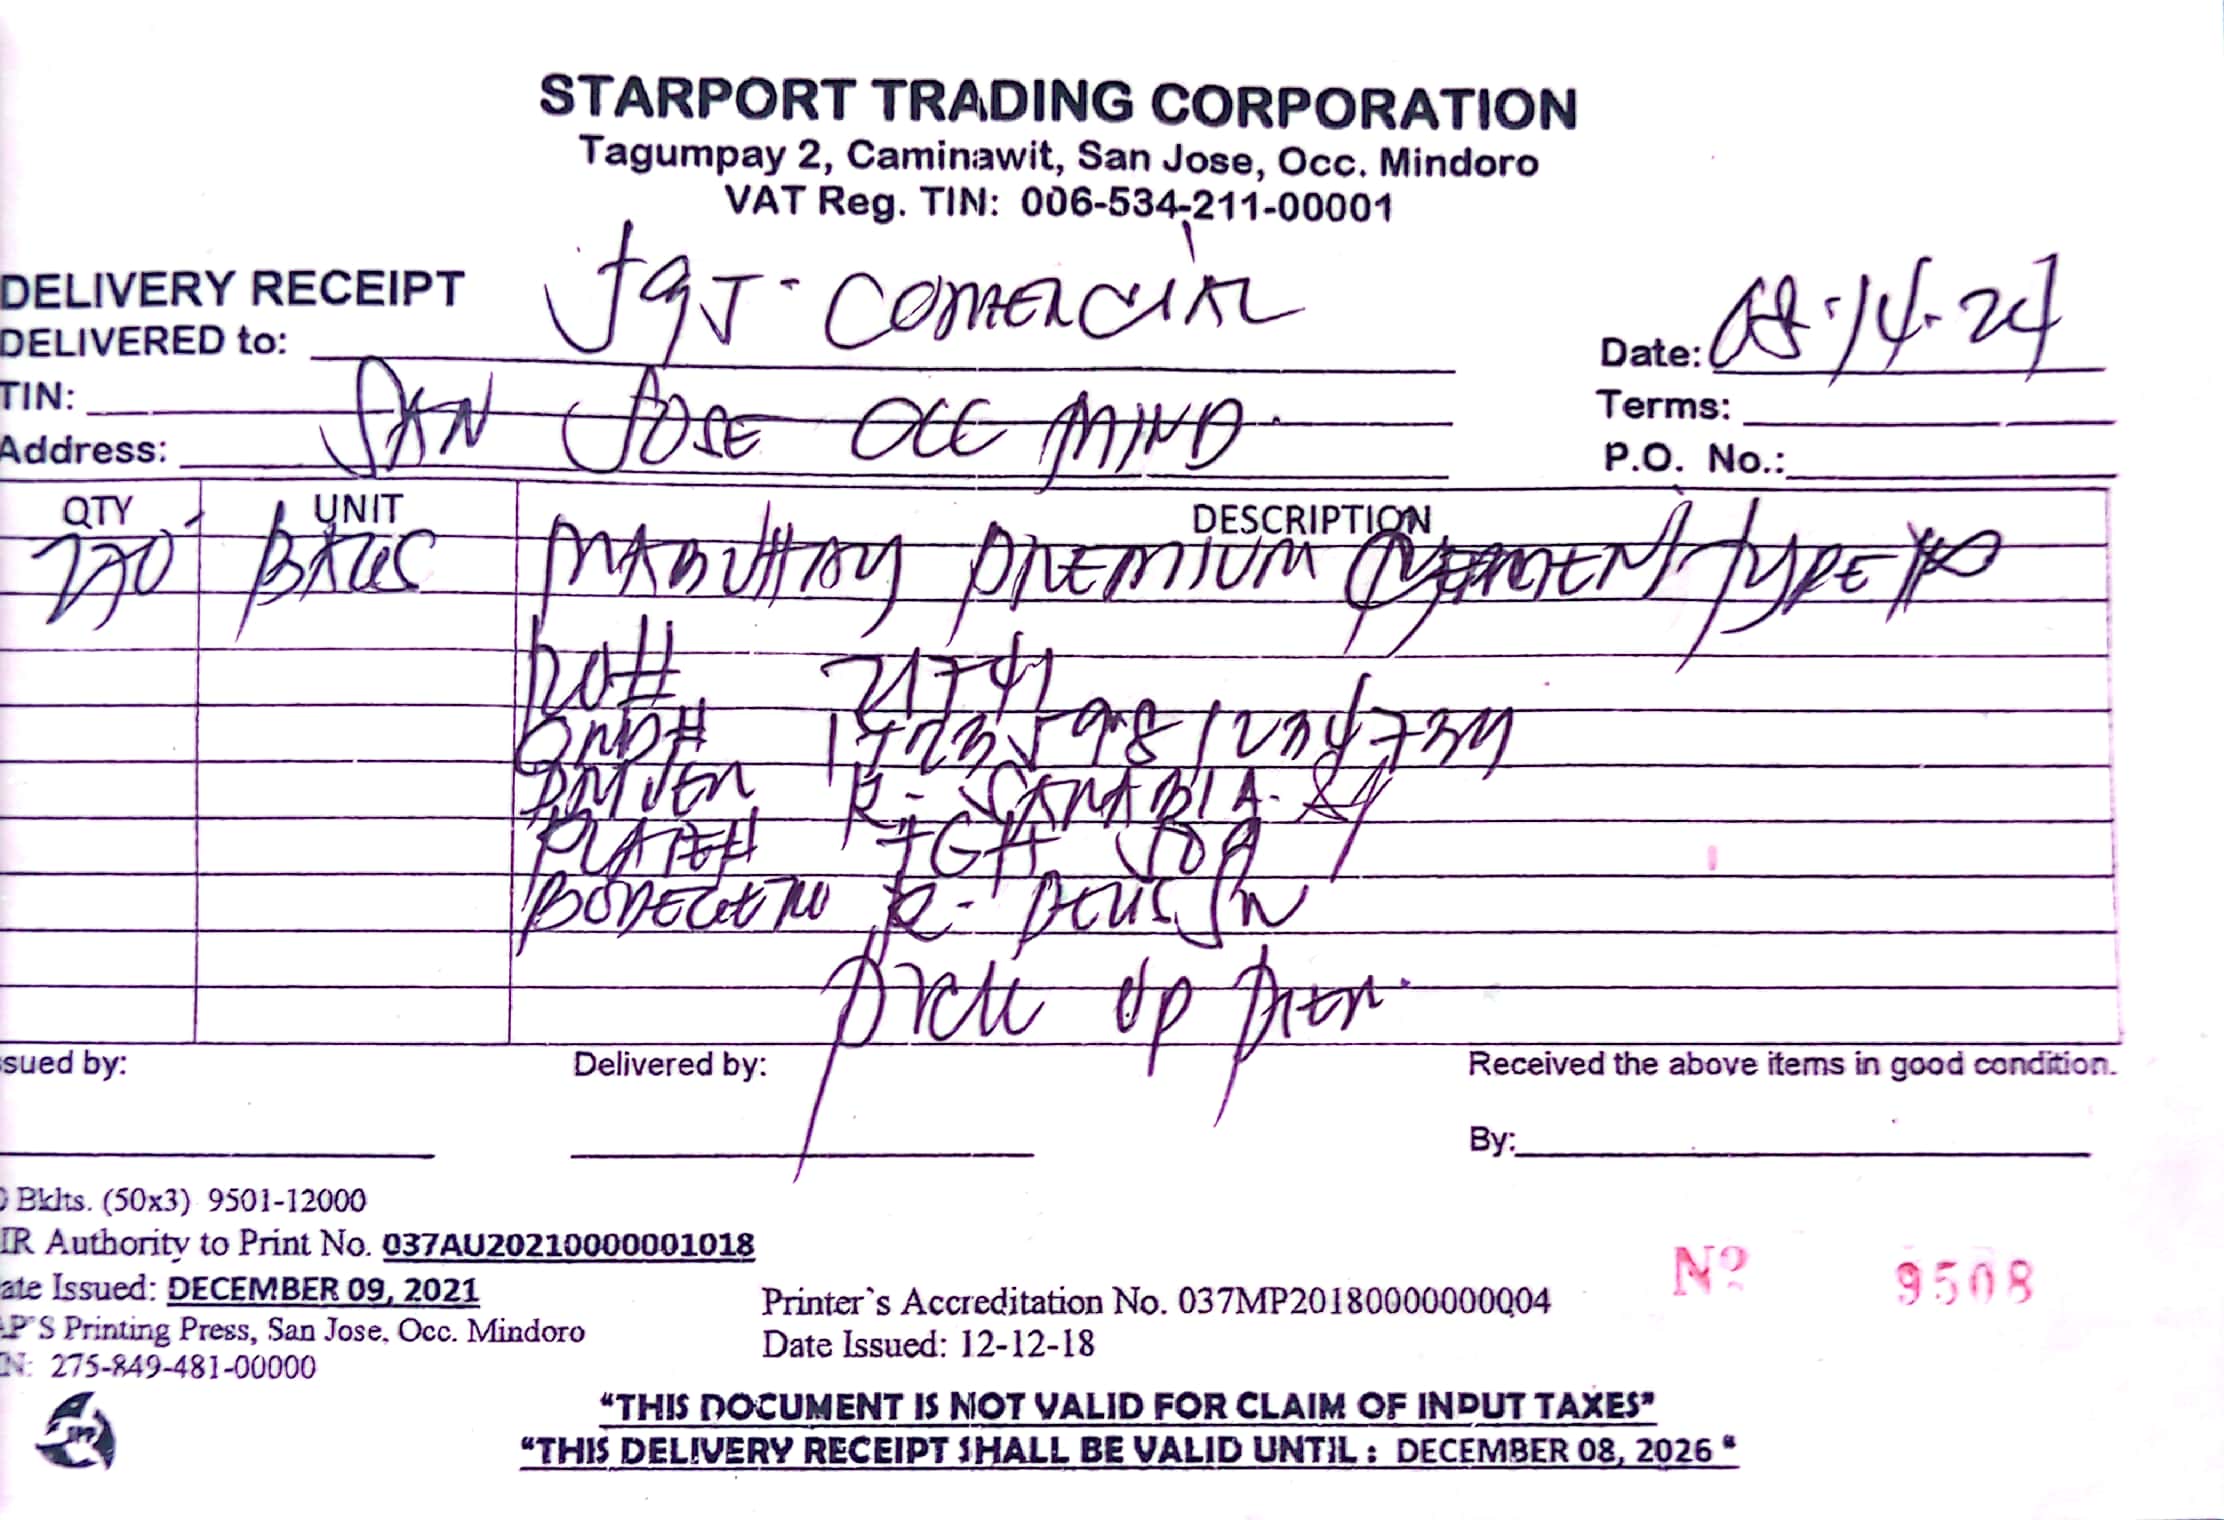 STARPORT TRADING CORPORATION
Tagumpay 2, Caminawit, San Jose, Occ. Mindoro
VAT Reg. TIN: 006-534-211-00001
DELIVERY RECEIPT
DELIVERED to: JGJ - COMERCIAL
Date: 08-14-24
TIN:
Terms:
Address: SAN JOSE OCC MIND.
P.O. No.:
QTY UNIT DESCRIPTION
270 BAGS MABUHAY PREMIUM CEMENT TYPE
PO# 21741
17235981234739
DRIVER R.
PLATE#
BODEGERO R.
PICK UP PIER.
sued by: Delivered by: Received the above items in good condition.
By:
Bklts. (50x3) 9501-12000
IR Authority to Print No. 037AU20210000001018
ate Issued: DECEMBER 09, 2021
P'S Printing Press, San Jose, Occ. Mindoro
N: 275-849-481-00000
Printer's Accreditation No. 037MP20180000000004
Date Issued: 12-12-18
Nº 9508
"THIS DOCUMENT IS NOT VALID FOR CLAIM OF INPUT TAXES"
"THIS DELIVERY RECEIPT SHALL BE VALID UNTIL : DECEMBER 08, 2026 "